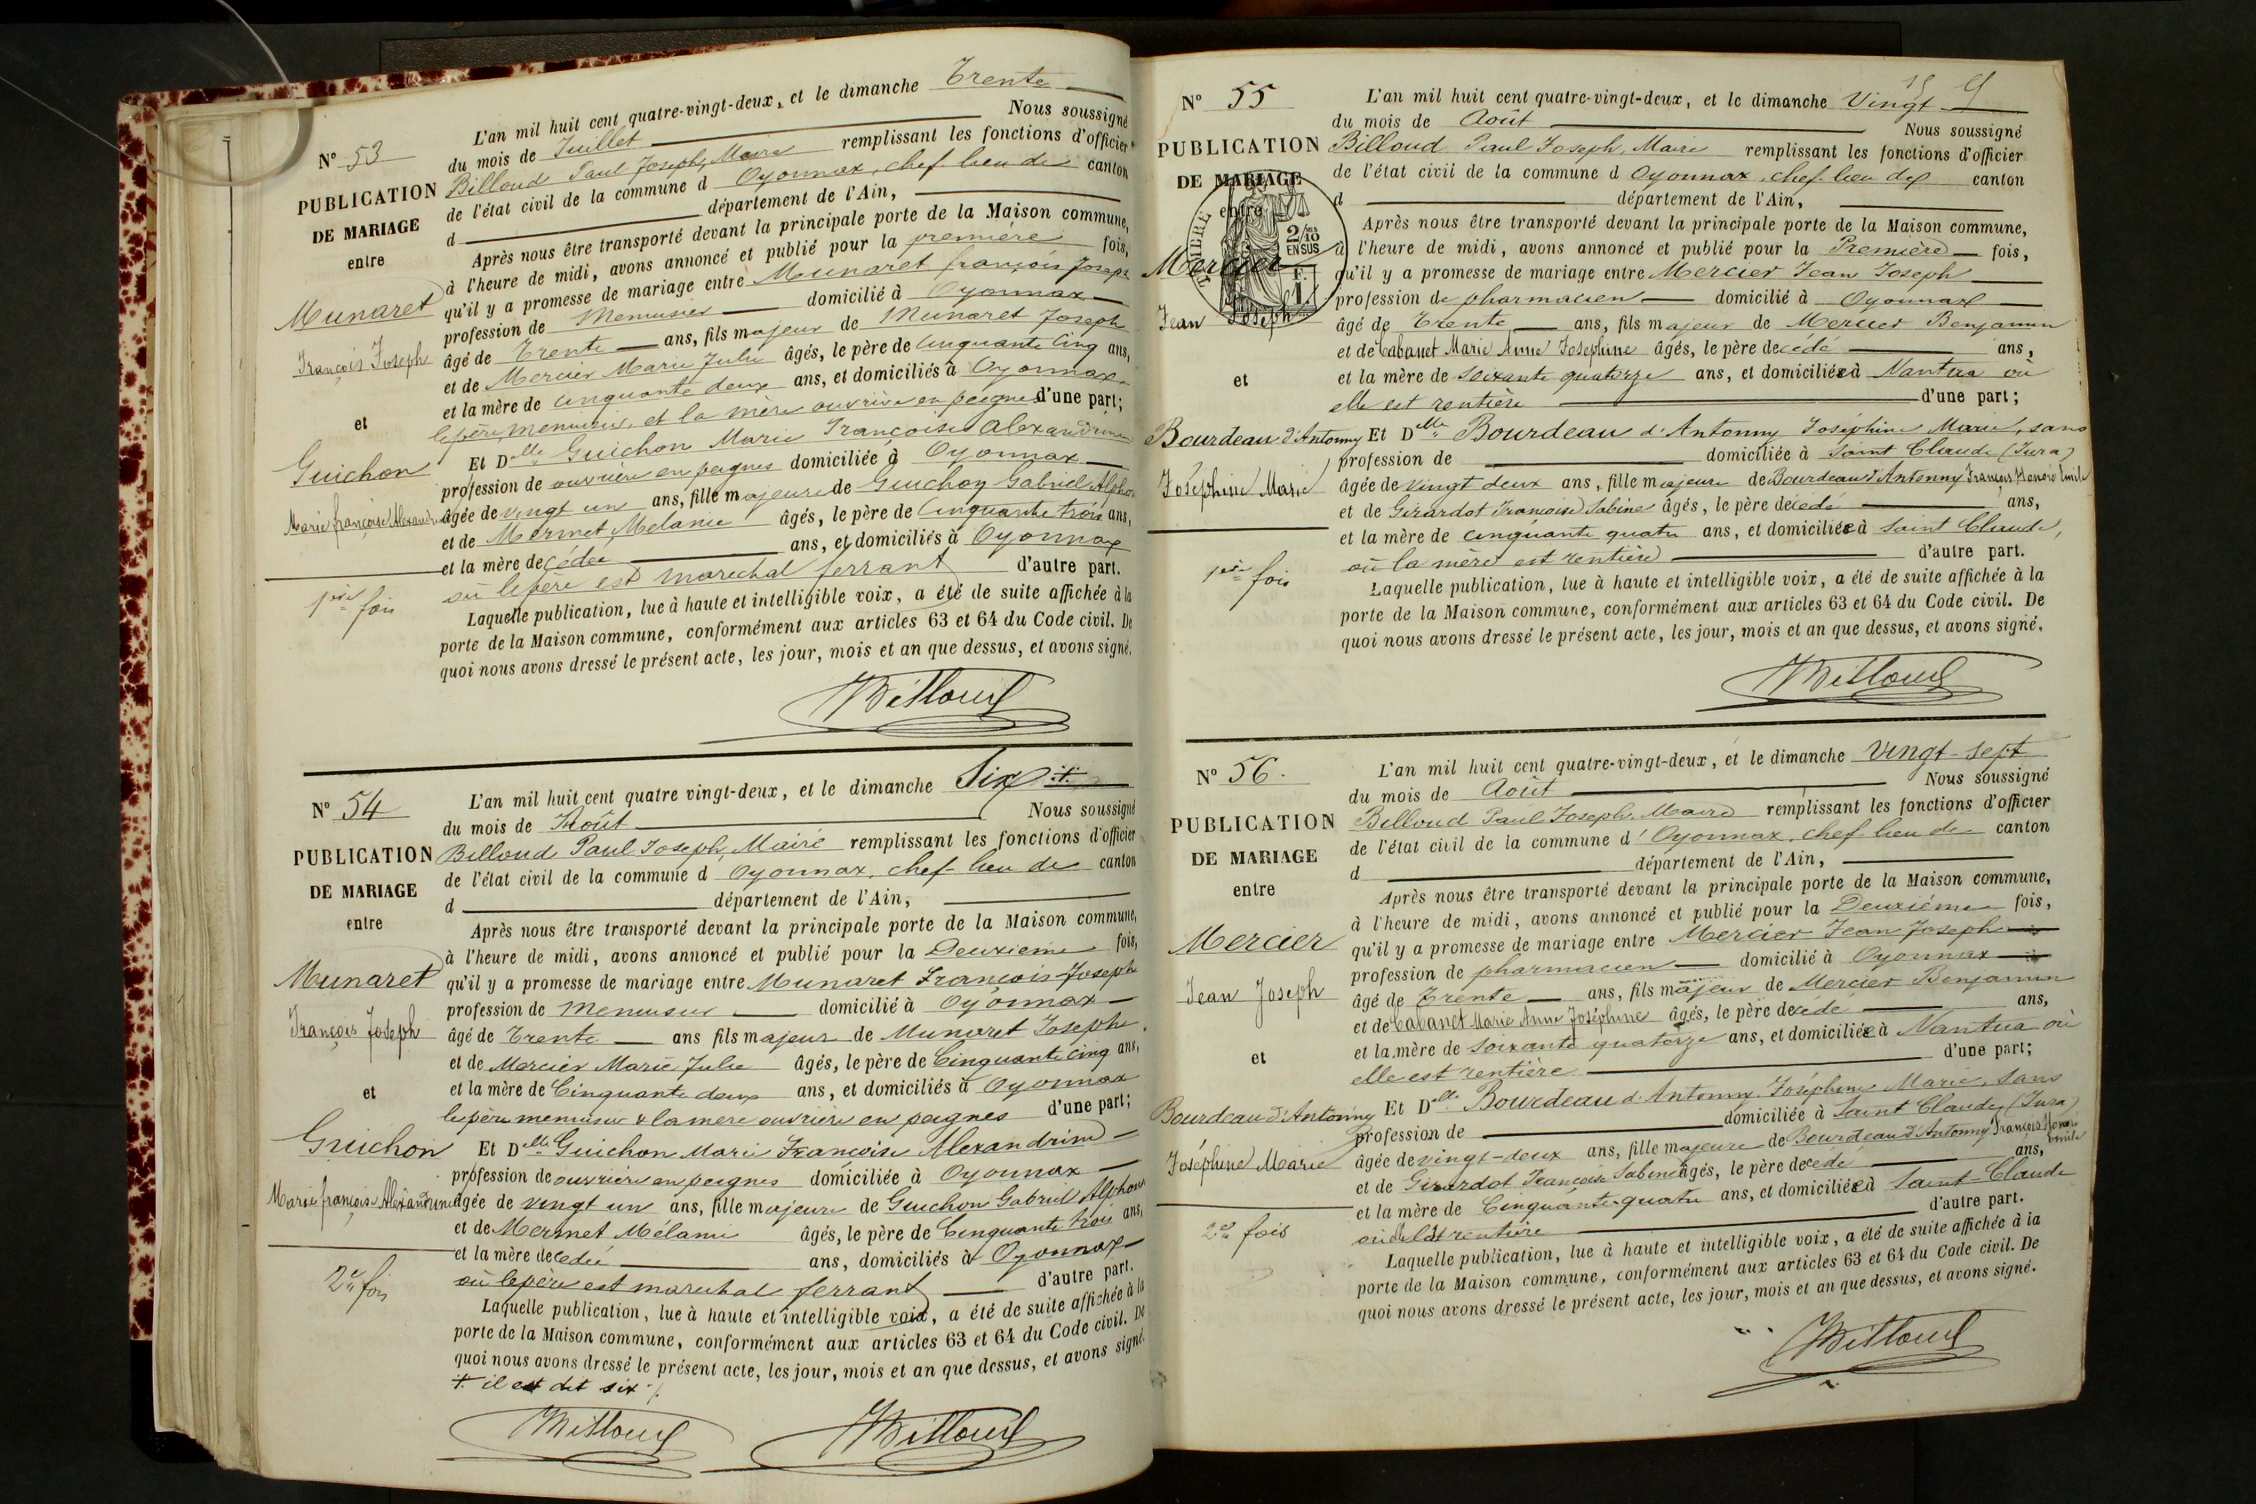 N° 53
PUBLICATION
DE MARIAGE
entre
Munaret
François Joseph
et
Guichon
Marie françoise Alexandrine
1ère fois
L'an mil huit cent quatre-vingt-deux, et le dimanche Trente
du mois de Juillet Nous soussigné
Billoud Paul Joseph, Maire remplissant les fonctions d'officier
de l'état civil de la commune d Oyonnax, chef-lieu de canton
d département de l'Ain,
Après nous être transporté devant la principale porte de la Maison commune,
à l'heure de midi, avons annoncé et publié pour la première fois,
qu'il y a promesse de mariage entre Munaret françois Joseph
profession de Menuisier domicilié à Oyonnax
âgé de Trente ans, fils majeur de Munaret Joseph
et de Mercier Marie Julie âgés, le père de Cinquante Cinq ans,
et la mère de Cinquante deux ans, et domiciliés à Oyonnax
le père menuisier, et la mère ouvrière en peignes d'une part;
Et Delle Guichon Marie Françoise Alexandrine
profession de ouvrière en peignes domiciliée à Oyonnax
âgée de vingt un ans, fille majeure de Guichon Gabriel Alphon
et de Mermet Mélanie âgés, le père de Cinquante trois ans,
et la mère décédée ans, et domiciliés à Oyonnax
où le père est marechal ferrant d'autre part.
Laquelle publication, lue à haute et intelligible voix, a été de suite affichée à la
porte de la Maison commune, conformément aux articles 63 et 64 du Code civil. De
quoi nous avons dressé le présent acte, les jour, mois et an que dessus, et avons signé.
Billoud
N° 54
PUBLICATION
DE MARIAGE
entre
Munaret
François Joseph
et
Guichon
Marie françoise Alexandrine
2e fois
L'an mil huit cent quatre vingt-deux, et le dimanche Six
du mois de Août Nous soussigné
Billoud Paul Joseph, Maire remplissant les fonctions d'officier
de l'état civil de la commune d Oyonnax, chef-lieu de canton
d département de l'Ain,
Après nous être transporté devant la principale porte de la Maison commune,
à l'heure de midi, avons annoncé et publié pour la Deuxieme fois,
qu'il y a promesse de mariage entre Munaret François Joseph
profession de Menuisier domicilié à Oyonnax
âgé de Trente ans fils majeur de Munaret Joseph
et de Mercier Marie Julie âgés, le père de Cinquante cinq ans,
et la mère de Cinquante deux ans, et domiciliés à Oyonnax
le père menuisier & la mere ouvrière en peignes d'une part;
Et Delle Guichon Marie Françoise Alexandrine
profession de ouvrière en peignes domiciliée à Oyonnax
âgée de vingt un ans, fille majeure de Guichon Gabriel Alphons
et de Mermet Mélanie âgés, le père de Cinquante trois ans,
et la mère décédée ans, domiciliés à Oyonnax
où le père est marechal ferrant d'autre part.
Laquelle publication, lue à haute et intelligible voix, a été de suite affichée à la
porte de la Maison commune, conformément aux articles 63 et 64 du Code civil. De
quoi nous avons dressé le présent acte, les jour, mois et an que dessus, et avons signé.
il est dit six
Billoud Billoud
N° 55
PUBLICATION
DE MARIAGE
entre
TIMBRE
2/10
EN SUS
F.
1
Mercier
Jean Joseph
et
Bourdeau d'Antonny
Joséphine Marie
1ère fois
L'an mil huit cent quatre-vingt-deux, et le dimanche Vingt
du mois de Août Nous soussigné
Billoud Paul Joseph, Maire remplissant les fonctions d'officier
de l'état civil de la commune d Oyonnax, chef-lieu de canton
d département de l'Ain,
Après nous être transporté devant la principale porte de la Maison commune,
à l'heure de midi, avons annoncé et publié pour la Première fois,
qu'il y a promesse de mariage entre Mercier Jean Joseph
profession de pharmacien domicilié à Oyonnax
âgé de Trente ans, fils majeur de Mercier Benjamin
et de Cabanet Marie Anne Joséphine âgés, le père décédé ans,
et la mère de soixante quatorze ans, et domiciliée à Nantua où
elle est rentière d'une part;
Et Delle Bourdeau d'Antonny Joséphine Marie, sans
profession de domiciliée à Saint Claude (Jura)
âgée de vingt deux ans, fille majeure de Bourdeau d'Antonny François Honoré Emile
et de Girardot Françoise Sabine âgés, le père décédé ans,
et la mère de cinquante quatre ans, et domiciliée à Saint Claude,
où la mère est rentière d'autre part.
Laquelle publication, lue à haute et intelligible voix, a été de suite affichée à la
porte de la Maison commune, conformément aux articles 63 et 64 du Code civil. De
quoi nous avons dressé le présent acte, les jour, mois et an que dessus, et avons signé.
Billoud
N° 56.
PUBLICATION
DE MARIAGE
entre
Mercier
Jean Joseph
et
Bourdeau d'Antonny
Joséphine Marie
2e fois
L'an mil huit cent quatre-vingt-deux, et le dimanche Vingt-Sept
du mois de Août Nous soussigné
Billoud Paul Joseph, Maire remplissant les fonctions d'officier
de l'état civil de la commune d'Oyonnax, chef-lieu de canton
d département de l'Ain,
Après nous être transporté devant la principale porte de la Maison commune,
à l'heure de midi, avons annoncé et publié pour la Deuxième fois,
qu'il y a promesse de mariage entre Mercier Jean Joseph
profession de pharmacien domicilié à Oyonnax
âgé de Trente ans, fils majeur de Mercier Benjamin
et de Cabanet Marie Anne Joséphine âgés, le père décédé ans,
et la mère de soixante quatorze ans, et domiciliée à Nantua où
elle est rentière d'une part;
Et Delle Bourdeau d'Antonny Joséphine Marie, sans
profession de domiciliée à Saint Claude (Jura)
âgée de vingt-deux ans, fille majeure de Bourdeau d'Antonny François Honoré Emile
et de Girardot Françoise Sabine âgés, le père décédé ans,
et la mère de Cinquante-quatre ans, et domiciliée à Saint-Claude
où elle est rentière d'autre part.
Laquelle publication, lue à haute et intelligible voix, a été de suite affichée à la
porte de la Maison commune, conformément aux articles 63 et 64 du Code civil. De
quoi nous avons dressé le présent acte, les jour, mois et an que dessus, et avons signé.
Billoud